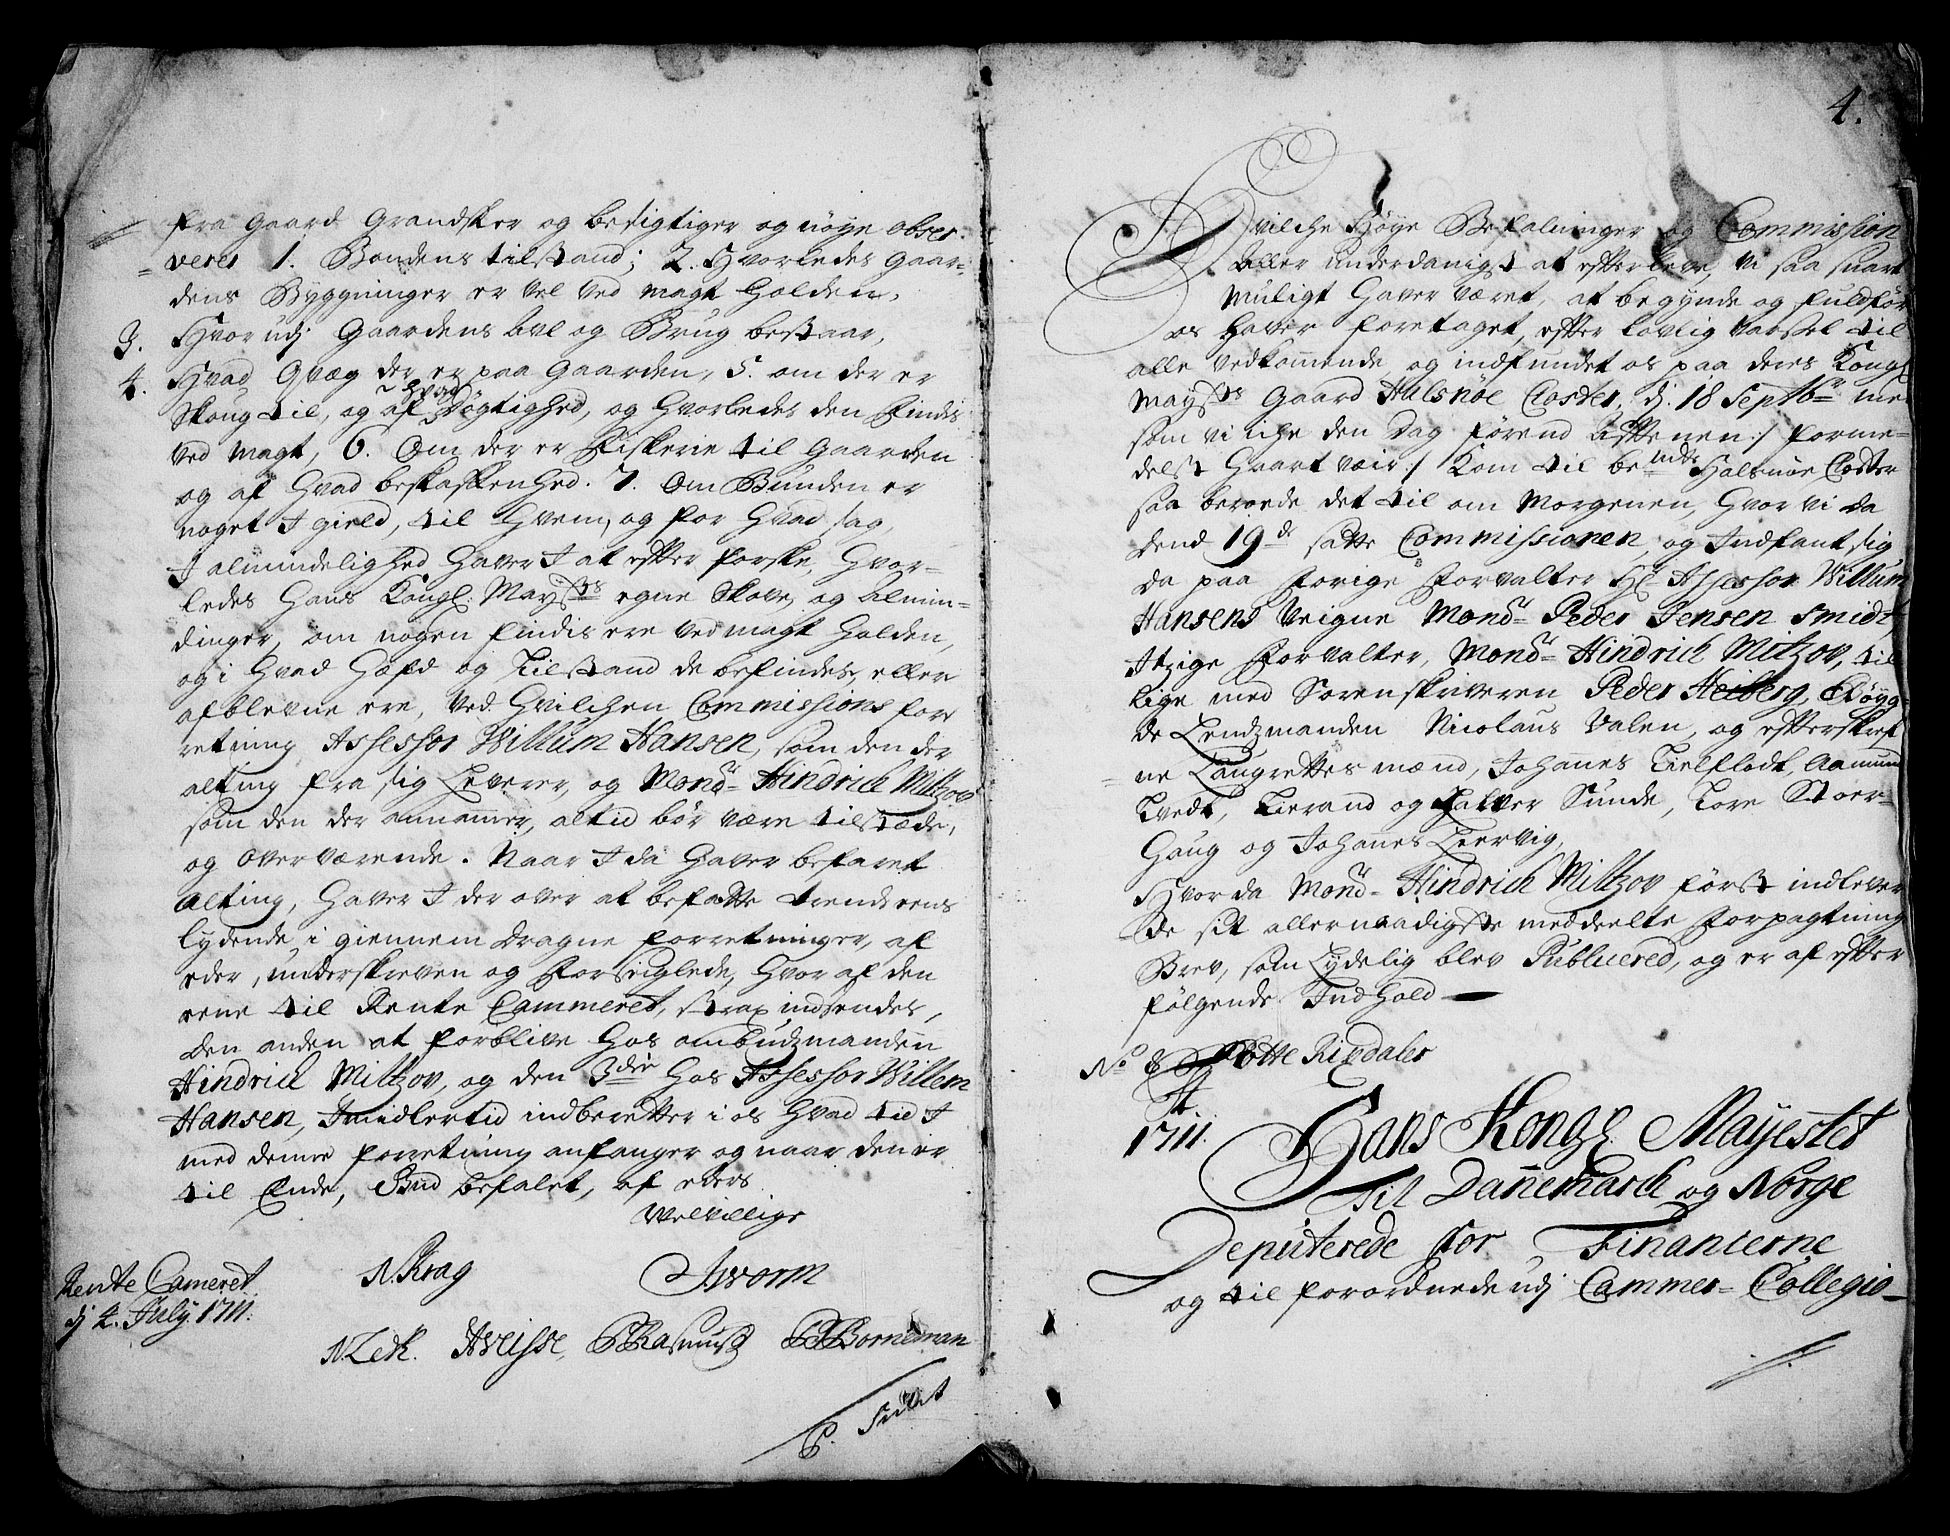 fra gaard grandsker og besigtiger og nøye obser-
verer 1. Bondens tilstand; 2. Hvorledes gaar-
dens Bygninger er vel ved magt holden,
3. Hvor udj gaardens aul og Brug bestaar,
4. Hvad Qvæg der er paa gaarden, 5. om der er
Skoug til, og af hvad Døgtighed, og hvorledes den findis
ved magt, 6. Om der er Fiskerie til gaarden
og af hvad beskaffenhed. 7. Om Bunden er
noget I gield, til hvem, og for hvad sag,
I almindelighed haver I at efter forske, hvor-
ledes Hans Kongl. Maysts egne Skove, og almin-
dinger, om nogen findis ere ved magt holden,
og i hvad hæfd og tilstand de befindes, eller
afblevne ere, ved hvilchen Commissions for
retning Assessor Willum Hansen, som den der
alting fra sig leverer, og Monsr Hindrich Miltzov
som den der annamer, altid bør være tilstæde,
og overværende. Naar I da haver befaret
alting, haver I der over at befatte trende eens
lydende, i giennem dragne forretninger, af
eder, underskreven og forseiglede, hvor af den
eene til Rente Cammeret, strax indsendes,
den anden at forblive hos ambudzmanden
Hindrich Miltzov, og den 3die hos Assessor Willem
Hansen, Imidlertid indberetter i os hvad tid I
med denne forretning anfanger og naar den er
til Ende, Gud befalet, af eders
Welvillige
Rente Cameret
dj 4. July 1711.
N Krag
J worm
N Lek. A Weisse, P Rasmus B Borneman
4.
Hvilche Høye Befalninger og Commission
aller underdanigst at efterleve, vi saa snart
muligt haver været, at begynde og fuldfør
os haver foretaget, efter lovlig Varsel til
alle vedkommende, og indfundet os paa deris Kongl
Maysts gaard Halsnøe Closter, dj. 18 Septbr men
som vi iche den dag førend Aftenen /: forme-
delst haart vær :/ kom til bete Halsnøe Closter
saa beroede det til om Morgenen, hvor vi da
dend 19de satte Commissionen, og Indfant sig
da paa forige Forvalter Hr Assessor Willum
Hansens Veigne Monsr Peder Jensen Smidt,
Itzige Forvalter, Monsr Hindrich Miltzov, til
lige med Sorenskriveren Peder Heiberg, Bøyg-
de Lendzmanden Nicolaus Valen, og efterskref
ne Laugrettes mænd, Johannes Tielflodt, Aamund
Tvedt, Tierand og Halver Sunde, Tore Stoer-
haug og Johannes Leervig,
Hvor da Monsr Hindrich Miltzov først indlever
de sit allernaadigste meddeelte Forpagtning
Brev, som Lydelig blev Publicered, og er af efter
følgende Indhold
No 8 Otte Rixdaler
1711.
Hans Kongl. Mayestet
Til Dannemarck og Norge
Deputerede for Financerne
og til forordnede udj Cammer-Collegio